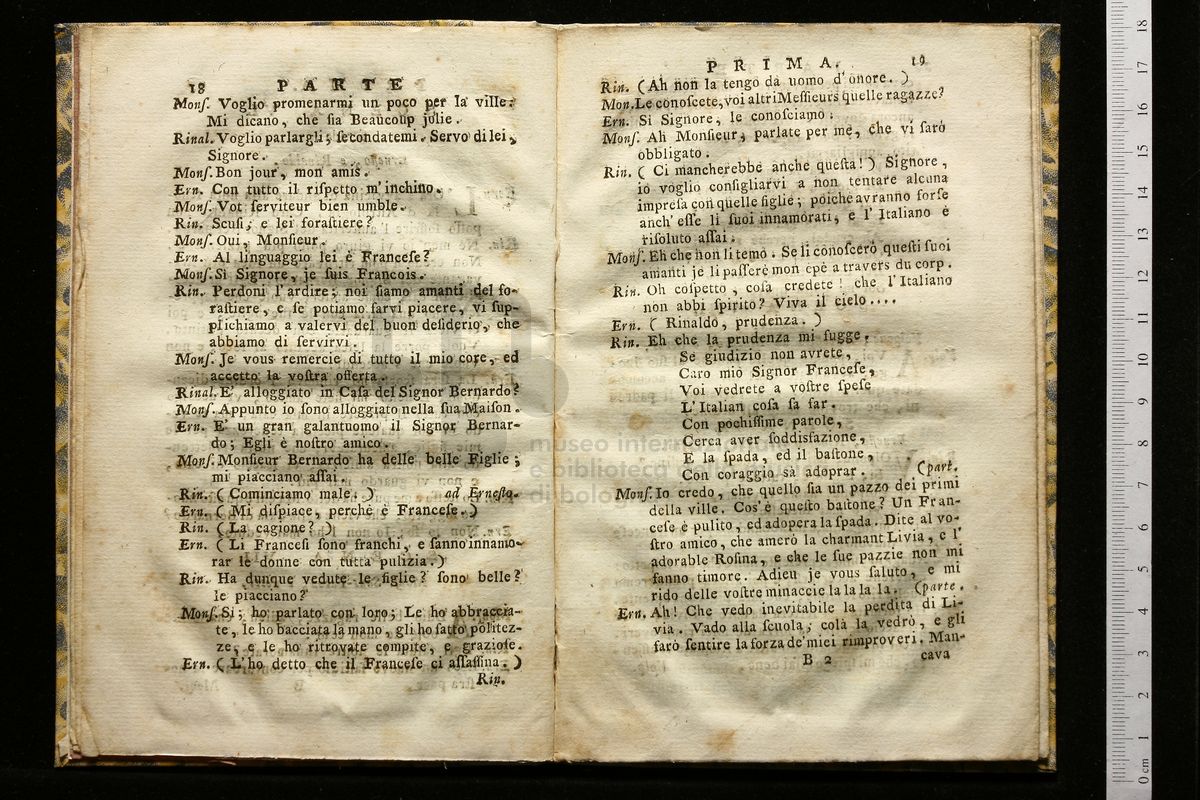 18 PARTE
Monſ. Voglio promenarmi un poço per la ville:
Mi dicano, che ſia Beaucoup jolie.
Rinal. Voglio parlargli; ſecondatemi. Servo di lei,
Signore.
Monſ. Bon jour, mon amis.
Ern. Con tutto il riſpetto m'inchino.
Monſ. Vot ſerviteur bien umble.
Rin. Scuſi, e lei foraſtiere?
Monſ. Oui, Monſieur.
Ern. Al linguaggio lei è Franceſe?
Monſ. Sì Signore, je ſuis Francois.
Rin. Perdoni l'ardire; noi ſiamo amanti del fo-
raſtiere, e ſe potiamo farvi piacere, vi ſup-
plichiamo a valervi del buon deſiderio, che
abbiamo di ſervirvi.
Monſ. Je vous remercie di tutto il mio core, ed
accetto la voſtra offerta.
Rinal. E' alloggiato in Caſa del Signor Bernardo?
Monſ. Appunto io ſono alloggiato nella ſua Maiſon.
Ern. E' un gran galantuomo il Signor Bernar-
do; Egli è noſtro amico.
Monſ. Monſieur Bernardo ha delle belle Figlie;
mi piacciano aſſai.
Rin. (Cominciamo male.) ad Erneſto.
Ern. (Mi diſpiace, perchè è Franceſe.)
Rin. (La cagione?)
Ern. (Li Franceſi ſono franchi, e ſanno innamo-
rar le donne con tutta pulizia.)
Rin. Ha dunque vedute le figlie? ſono belle?
le piacciano?
Monſ. Si; ho parlato con loro; Le ho abbraccia-
te, le ho bacciata la mano, gli ho fatto politez-
ze, e le ho ritrovate compite, e grazioſe.
Ern. (L'ho detto che il Franceſe ci aſſaſſina.)
Rin.
PRIMA. 19
Rin. (Ah non la tengo da uomo d'onore.)
Mon. Le conoſcete, voi altri Meſſieurs quelle ragazze?
Ern. Sì Signore, le conoſciamo.
Monſ. Ah Monſieur, parlate per me, che vi ſarò
obbligato.
Rin. (Ci mancherebbe anche queſta!) Signore,
io voglio conſigliarvi a non tentare alcuna
impreſa con quelle figlie; poiche avranno forſe
anch'eſſe li ſuoi innamorati, e l'Italiano è
riſoluto aſſai.
Monſ. Eh che non li temo. Se li conoſcerò queſti ſuoi
amanti je li paſſerè mon epè a travers du corp.
Rin. Oh coſpetto, coſa credete! che l'Italiano
non abbi ſpirito? Viva il cielo....
Ern. (Rinaldo, prudenza.)
Rin. Eh che la prudenza mi fugge,
Se giudizio non avrete,
Caro mio Signor Franceſe,
Voi vedrete a voſtre ſpeſe
L'Italian coſa ſa far.
Con pochiſſime parole,
Cerca aver ſoddisfazione,
E la ſpada, ed il baſtone,
Con coraggio sà adoprar. (part.
Monſ. Io credo, che quello ſia un pazzo dei primi
della ville. Cos'è queſto baſtone? Un Fran-
ceſe è pulito, ed adopera la ſpada. Dite al vo-
ſtro amico, che amerò la charmant Livia, e l'
adorable Roſina, e che le ſue pazzie non mi
fanno timore. Adieu je vous ſaluto, e mi
rido delle voſtre minaccie la la la la. (parte.
Ern. Ah! Che vedo inevitabile la perdita di Li-
via. Vado alla ſcuola, colà la vedrò, e gli
farò ſentire la forza de'miei rimproveri. Man-
B 2 cava
museo inter
e biblioteca
di bolo